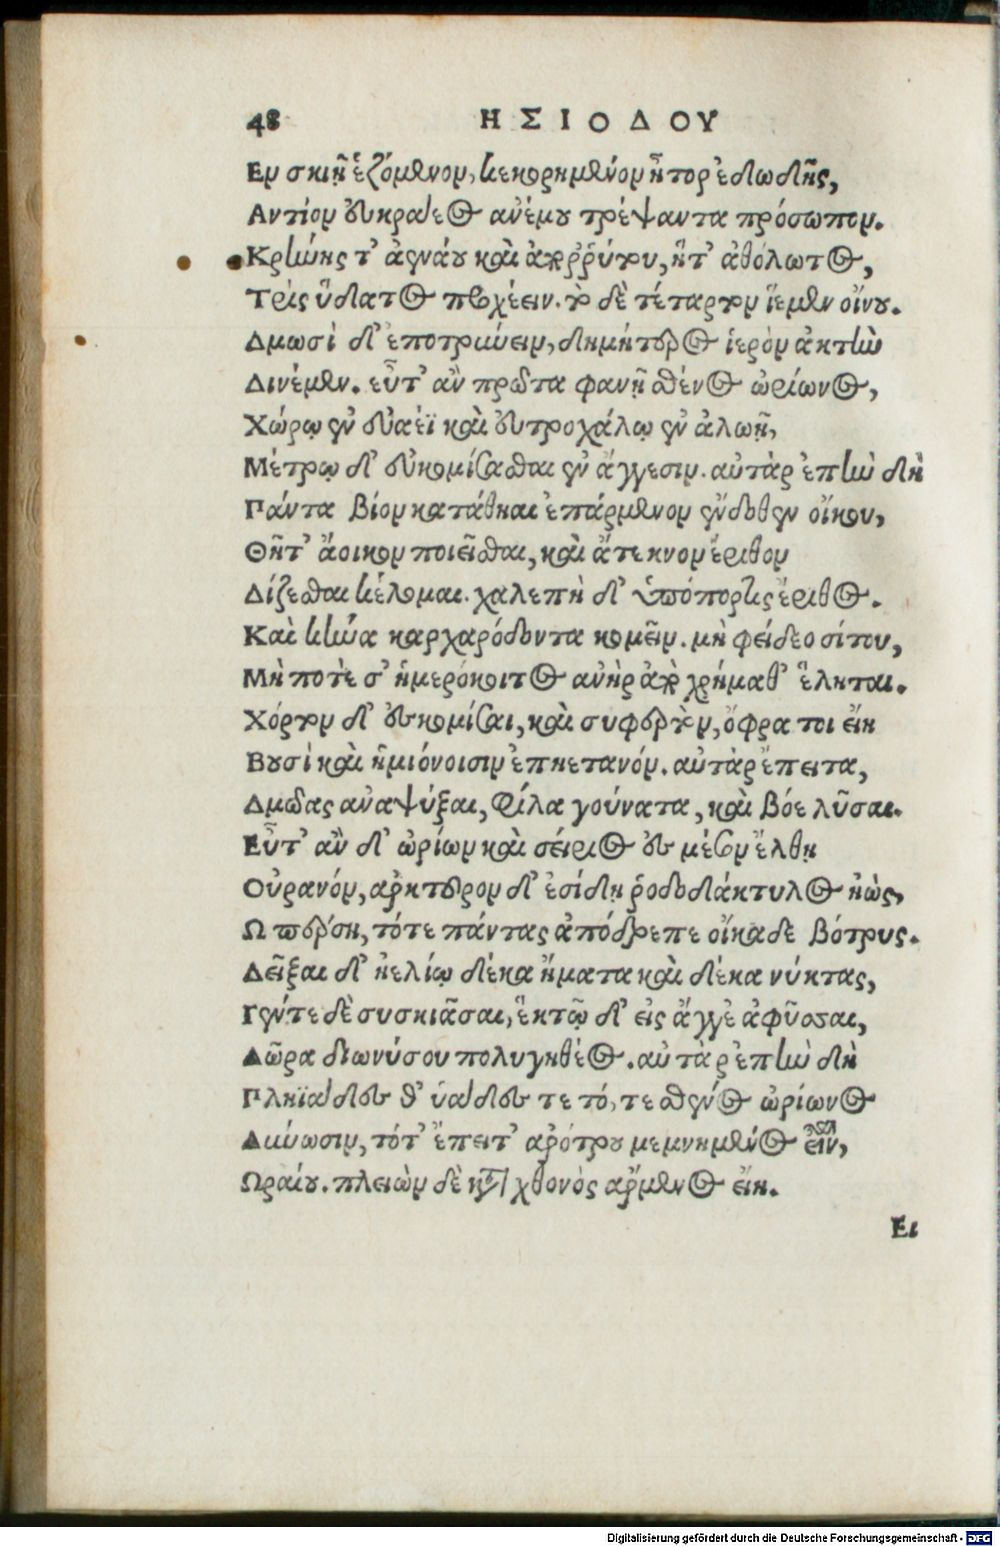 48 ΗΣΙΟΔΟΥ
Εν σκιῇ ἑζόμενον, κεκορημένον ἦτορ ἐδωδῆς,
Αντίον εὐκραέος ανέμου τρέψαντα πρόσωπον.
Κρήνης τ' ἀενάου καὶ ἀπορῤῥύτου, ἥτ' ἀθόλωτος,
Τρὶς ὕδατος προχέειν. τὸ δὲ τέταρτον ἵεμεν οἴνου.
Δμωσὶ δ' ἐποτρύνειν, δημήτερος ἱερὸν ἀκτὴν
Δινέμεν. εὖτ' ἂν πρῶτα φανῇ σθένος ὠρίωνος,
Χώρῳ ἐν εὐαέϊ καὶ εὐτροχάλῳ ἐν ἀλωῇ,
Μέτρῳ δ' εὐκομίσασθαι ἐν ἄγγεσιν. αὐτὰρ ἐπὴν δὴ
Πάντα βίον κατάθηαι ἐπάρμενον ἔνδοθεν οἴκου,
Θῆτ' ἄοικον ποιεῖσθαι, καὶ ἄτεκνον ἔριθον
Δίζεσθαι κέλομαι. χαλεπὴ δ' ὑπόπορτις ἔριθος.
Καὶ κύνα καρχαρόδοντα κομεῖν. μὴ φείδεο σίτου,
Μὴ ποτὲ σ' ἡμερόκοιτος ανὴρ ἀπὸ χρήμαθ' ἕληται.
Χόρτον δ' εὐκομίσαι, καὶ συφερτὸν, ὄφρα τοι εἴη
Βουσὶ καὶ ἡμιόνοισιν ἐπηετανόν. αὐτὰρ ἔπειτα,
Δμῶας αναψύξαι, φίλα γούνατα, καὶ βόε λῦσαι.
Εὖτ' ἂν δ' ὠρίων καὶ σείριος ἐς μέσον ἔλθῃ
Οὐρανόν, αρκτοῦρον δ' ἐσίδῃ ῥοδοδάκτυλος ἠὼς,
Ω πέρση, τότε πάντας ἀπόδρεπε οἴκαδε βότρυς.
Δεῖξαι δ' ἠελίῳ δέκα ἤματα καὶ δέκα νύκτας,
Πέντε δὲ συσκιᾶσαι, ἕκτῳ δ' εἰς ἄγγε ἀφῦσσαι,
Δῶρα διωνύσου πολυγηθέος. αὐτὰρ ἐπὴν δὴ
Πληϊάδες θ' ὑάδες τε τό, τε σθένος ὠρίωνος
Δύνωσιν, τότ' ἔπειτ' αρότρου μεμνημένος εἶναι,
Ωραίου. πλειὼν δὲ κατὰ χθονὸς αρμενος εἴη.
Ει
Digitalisierung gefördert durch die Deutsche Forschungsgemeinschaft - DFG